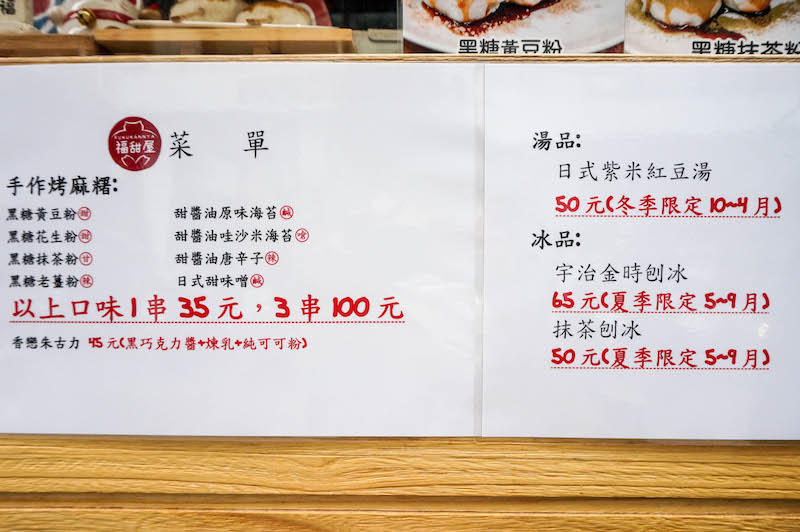 福
黑糖黃豆粉
黑糖抹茶粉
FUKUKANNYA
福甜屋
菜單
手作烤麻糬:
黑糖黃豆粉 甜
黑糖花生粉 甜
黑糖抹茶粉 甘
黑糖老薑粉 辣
甜醬油原味海苔 鹹
甜醬油哇沙米海苔 嗆
甜醬油唐辛子 辣
日式甜味噌 鹹
以上口味1串35元，3串100元
香戀朱古力 45元(黑巧克力醬+煉乳+純可可粉)
湯品:
日式紫米紅豆湯
50元(冬季限定10~4月)
冰品:
宇治金時刨冰
65元(夏季限定5~9月)
抹茶刨冰
50元(夏季限定5~9月)